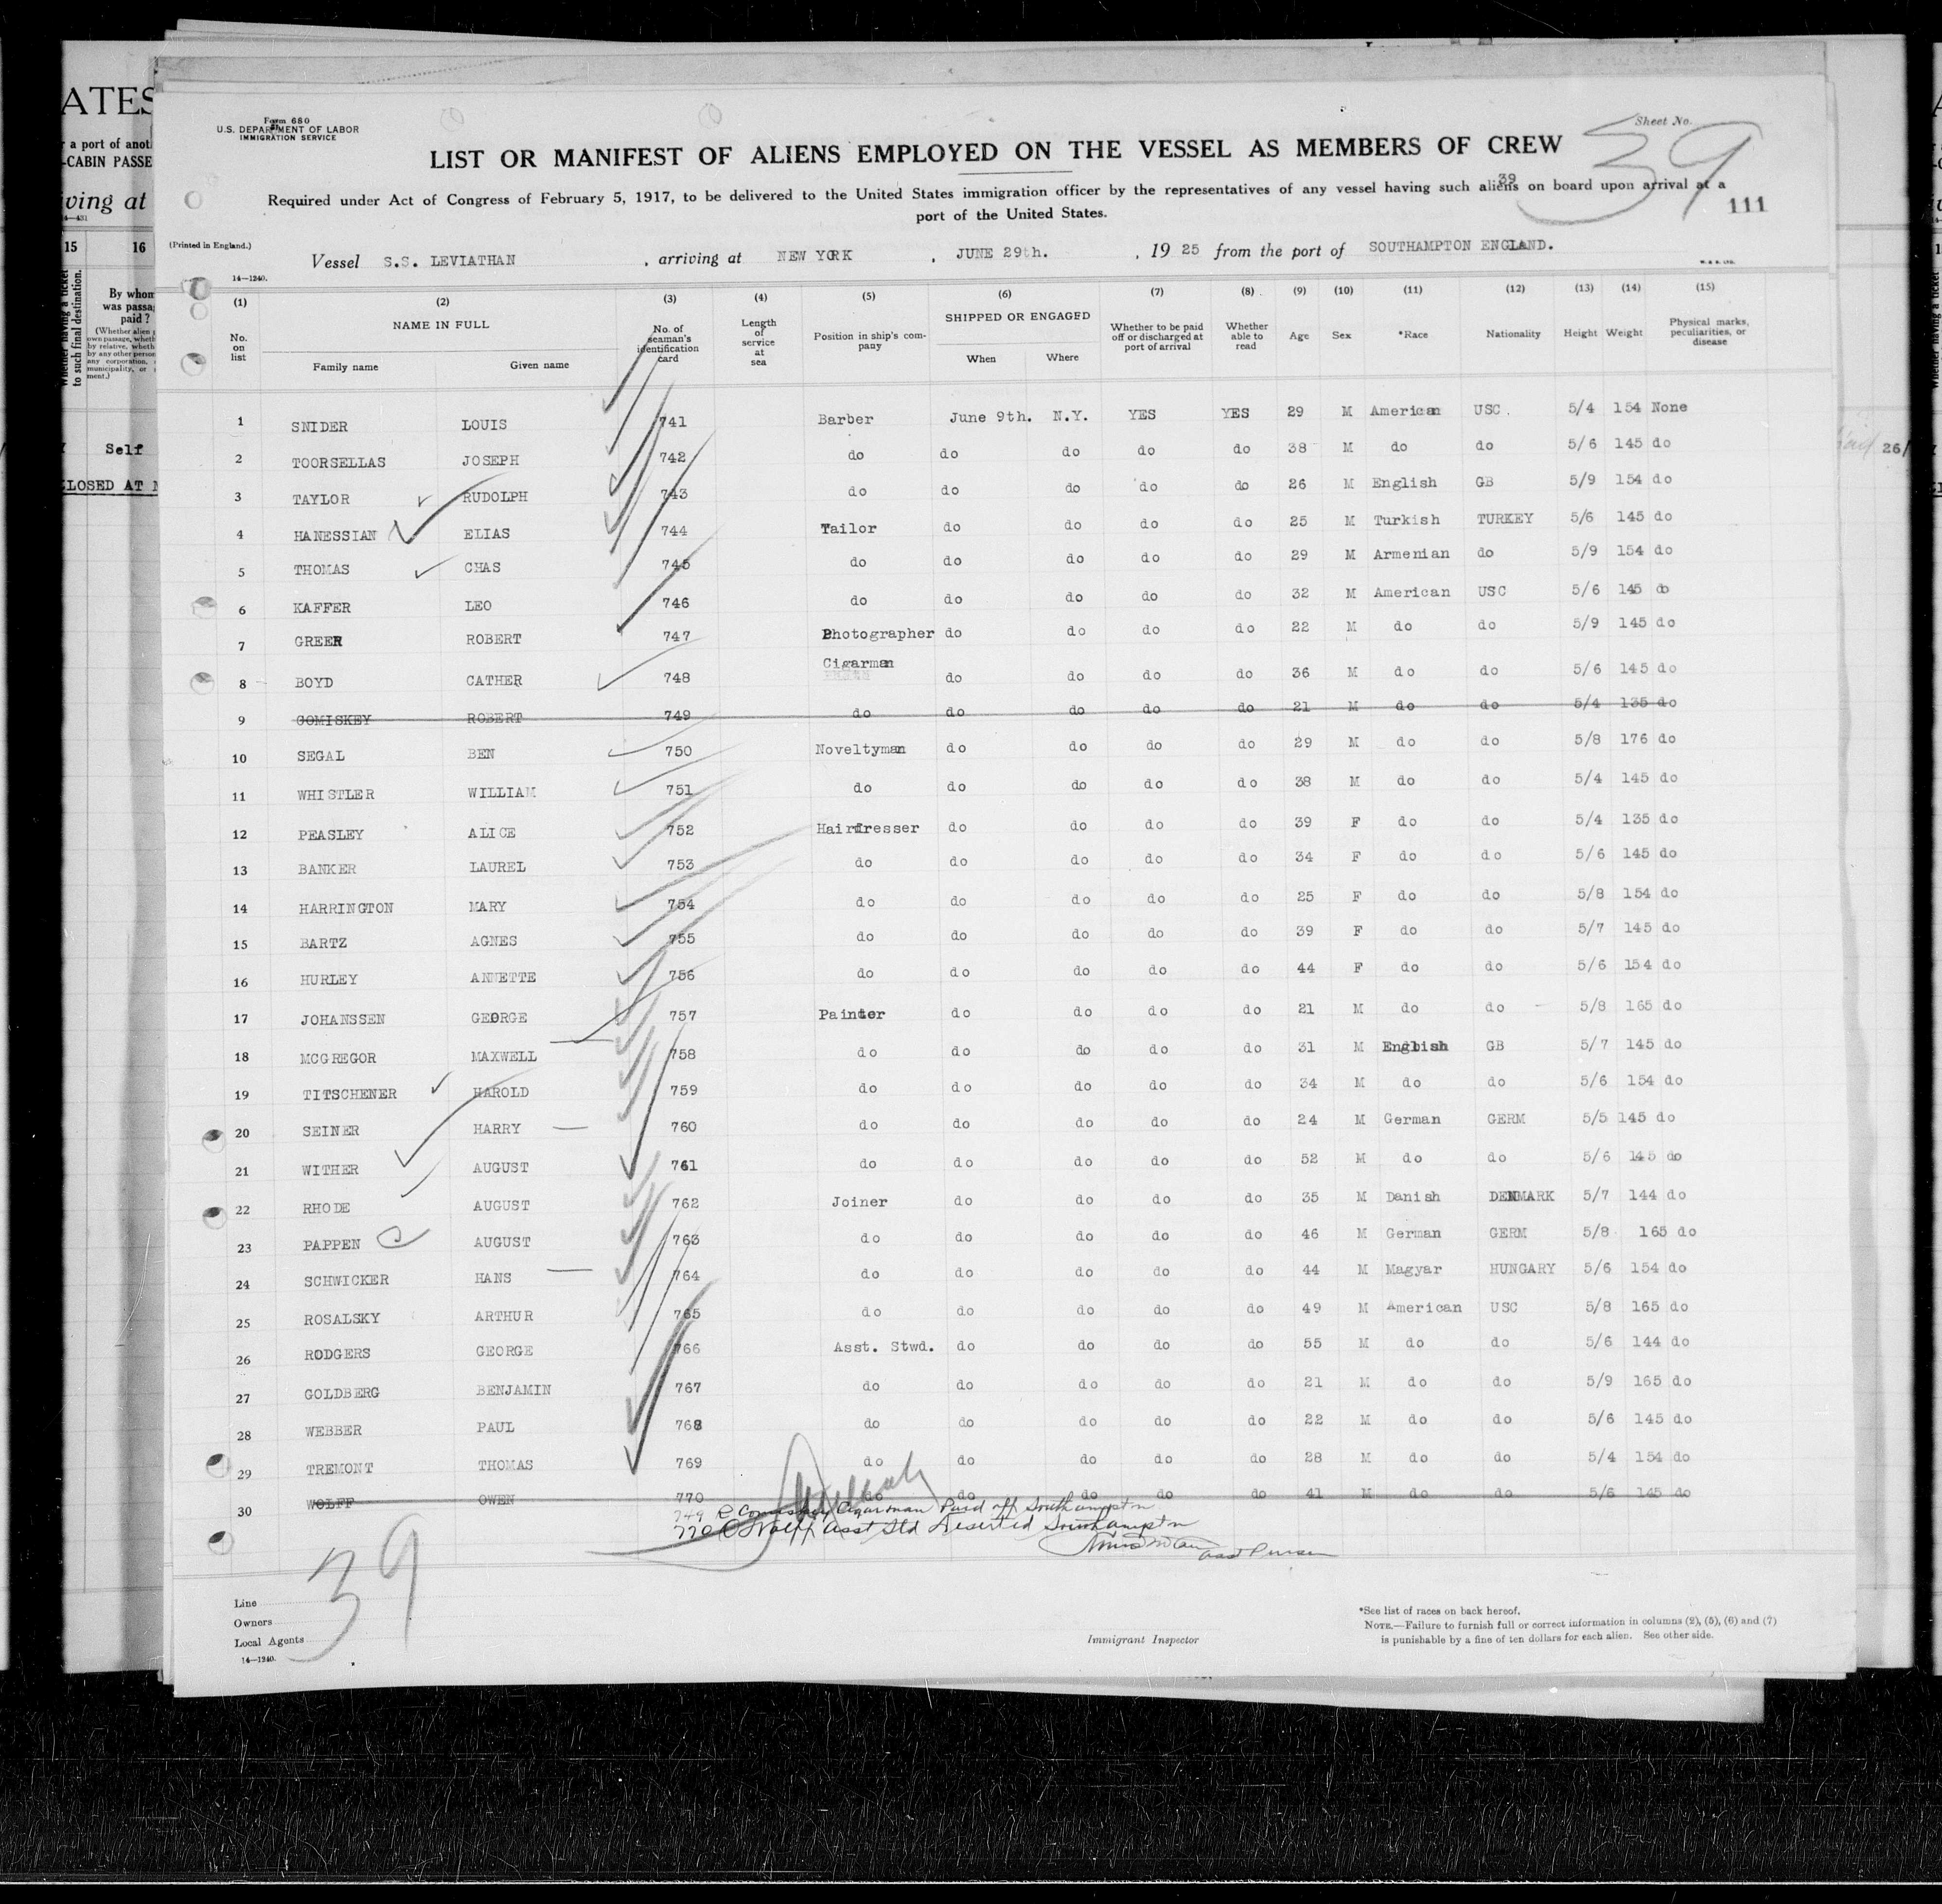 ATES
r a port of anot
-CABIN PASSE
iving at
14-431
15 16
Whether having a ticket to such final destination.
By whom
was passa
paid?
Self
LOSED AT N
26/
Form 680
U.S. DEPARTMENT OF LABOR
IMMIGRATION SERVICE
Sheet No.
39
LIST OR MANIFEST OF ALIENS EMPLOYED ON THE VESSEL AS MEMBERS OF CREW
39
Required under Act of Congress of February 5, 1917, to be delivered to the United States immigration officer by the representatives of any vessel having such aliens on board upon arrival at a
port of the United States.
111
(Printed in England.)
Vessel S.S. LEVIATHAN , arriving at NEW YORK , JUNE 29th. , 19 25 from the port of SOUTHAMPTON ENGLAND.
14—1240.
(1) (2) (3) (4) (5) (6) (7) (8) (9) (10) (11) (12) (13) (14) (15)
No. on list NAME IN FULL No. of seaman's identification card Length of service at sea Position in ship's company SHIPPED OR ENGAGED Whether to be paid off or discharged at port of arrival Whether able to read Age Sex *Race Nationality Height Weight Physical marks, peculiarities, or disease
Family name Given name When Where
1 SNIDER LOUIS 741 Barber June 9th. N.Y. YES YES 29 M American USC. 5/4 154 None
2 TOORSELLAS JOSEPH 742 do do do do do 38 M do do 5/6 145 do
3 TAYLOR RUDOLPH 743 do do do do do 26 M English GB 5/9 154 do
4 HANESSIAN ELIAS 744 Tailor do do do do 25 M Turkish TURKEY 5/6 145 do
5 THOMAS CHAS 745 do do do do do 29 M Armenian do 5/9 154 do
6 KAFFER LEO 746 do do do do do 32 M American USC 5/6 145 do
7 GREER ROBERT 747 Photographer do do do do 22 M do do 5/9 145 do
8 BOYD CATHER 748 Cigarman do do do do 36 M do do 5/6 145 do
9 COMISKEY ROBERT 749 do do do do do 21 M do do 5/4 135 do
10 SEGAL BEN 750 Noveltyman do do do do 29 M do do 5/8 176 do
11 WHISTLER WILLIAM 751 do do do do do 38 M do do 5/4 145 do
12 PEASLEY ALICE 752 Hairdresser do do do do 39 F do do 5/4 135 do
13 BANKER LAUREL 753 do do do do do 34 F do do 5/6 145 do
14 HARRINGTON MARY 754 do do do do do 25 F do do 5/8 154 do
15 BARTZ AGNES 755 do do do do do 39 F do do 5/7 145 do
16 HURLEY ANNETTE 756 do do do do do 44 F do do 5/6 154 do
17 JOHANSSEN GEORGE 757 Painter do do do do 21 M do do 5/8 165 do
18 MCGREGOR MAXWELL 758 do do do do do 31 M English GB 5/7 145 do
19 TITSCHENER HAROLD 759 do do do do do 34 M do do 5/6 154 do
20 SEINER HARRY 760 do do do do do 24 M German GERM 5/5 145 do
21 WITHER AUGUST 761 do do do do do 52 M do do 5/6 145 do
22 RHODE AUGUST 762 Joiner do do do do 35 M Danish DENMARK 5/7 144 do
23 PAPPEN AUGUST 763 do do do do do 46 M German GERM 5/8 165 do
24 SCHWICKER HANS 764 do do do do do 44 M Magyar HUNGARY 5/6 154 do
25 ROSALSKY ARTHUR 765 do do do do do 49 M American USC 5/8 165 do
26 RODGERS GEORGE 766 Asst. Stwd. do do do do 55 M do do 5/6 144 do
27 GOLDBERG BENJAMIN 767 do do do do do 21 M do do 5/9 165 do
28 WEBBER PAUL 768 do do do do do 22 M do do 5/6 145 do
29 TREMONT THOMAS 769 do do do do do 28 M do do 5/4 154 do
30 WOLFF OWEN 770 do do do do do 41 M do do 5/6 145 do
749 R Comiskey Cigarman Paid off Southampton
770 O Wolff Asst Std Deserted Southampton
Asst Purser
39
Line
Owners
Local Agents
14—1240.
Immigrant Inspector
*See list of races on back hereof.
NOTE.—Failure to furnish full or correct information in columns (2), (5), (6) and (7)
is punishable by a fine of ten dollars for each alien. See other side.